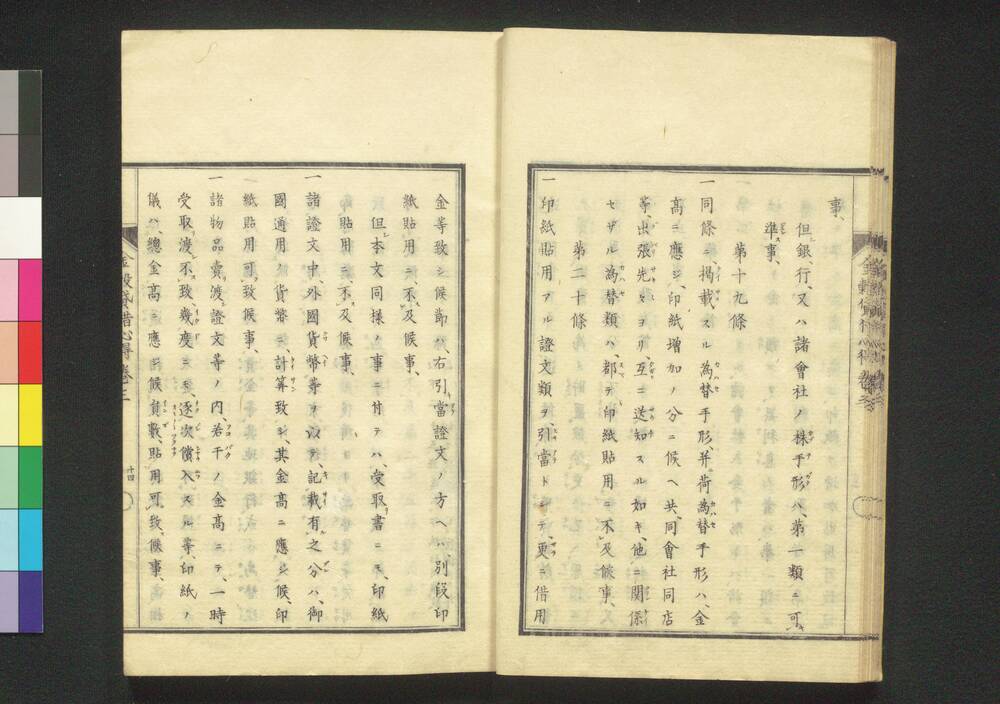 事、
但銀行、又ハ諸會社ノ様手形ハ、第一類ニ可
準事、
第十九條
一同條、掲載スル為替手形、并荷為替手形ハ、金
高ニ應ジ、印紙増加ノ分ニ候ヘ共、同會社同店
等、出張先ヨリ、互ニ送知スル如キ、他ニ關係
セザル為替類ハ、都テ印紙貼用ニ不及候事、
第二十條
一印紙貼用アル證文類ヲ、引當トシテ、更ニ借用
金等致シ候節ハ、右引當證文ノ方ヘハ、別段印
紙貼用ニ不及候事、
但本文同様ノ事ニ付テハ、受取書ニモ、印紙
貼用ニ不及候事、
一諸證文中、外國貨幣等ヲ以テ、記載有之分ハ、御
國通用ノ貨幣ニ計算致シ、其金高ニ應ジ候、印
紙貼用可致候事、
一諸物品賣渡證文等ノ内、若干ノ金高ニテ、一時
受取渡不致、幾度ニモ、逐次償入スル等、印紙ノ
儀ハ、總金高ニ應ジ候員數、貼用可致候事、
金穀貸借心得巻三
十四